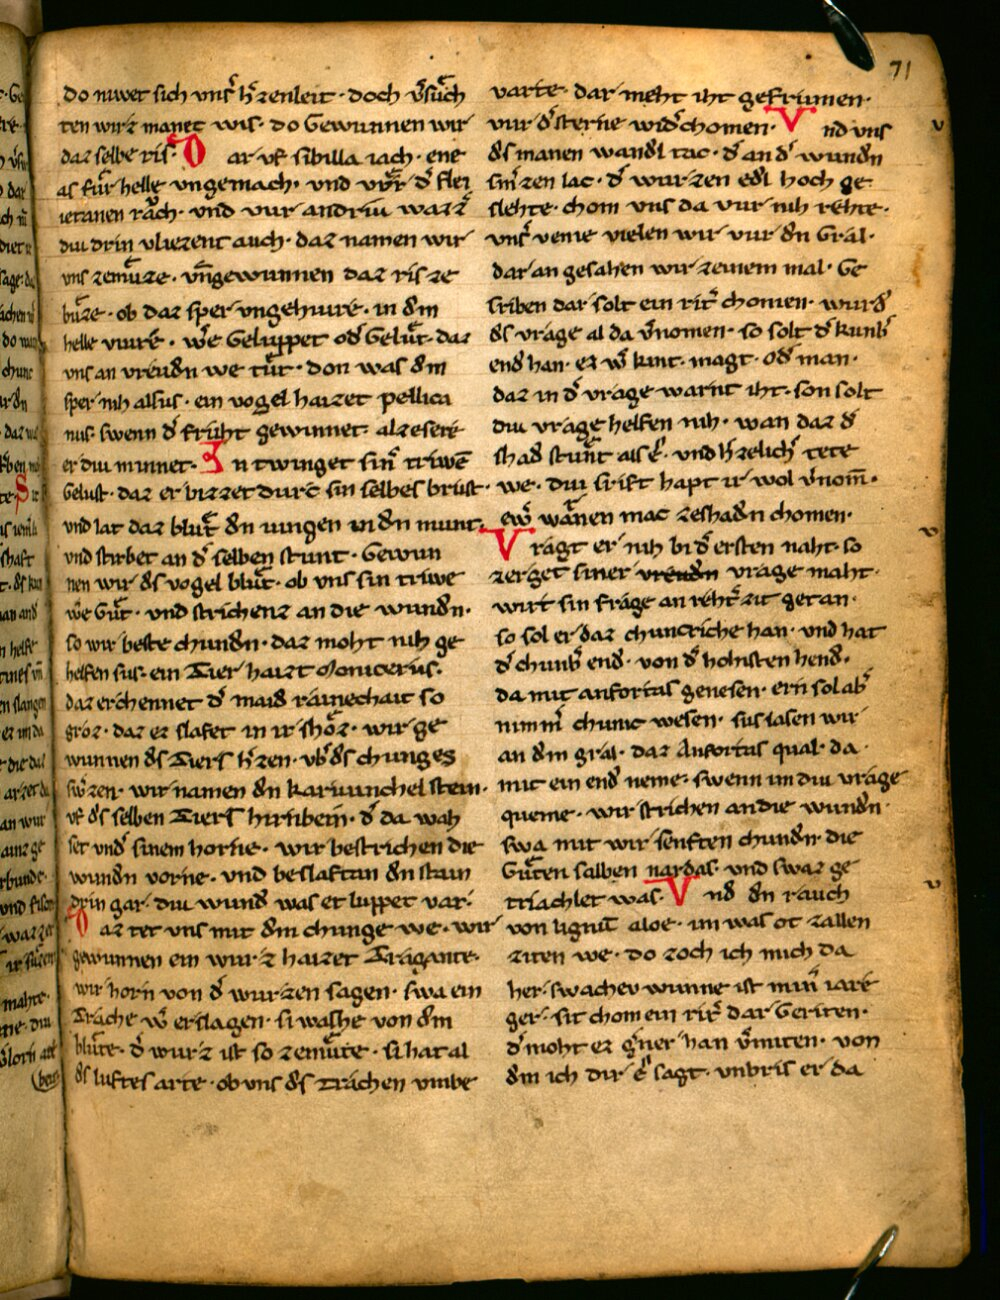 71
do niwet sich vnsˀ hˀzenleit · doch vˀsuͦch
ten wirz manec wis · do Gewunnen wir
daz selbe ris · D ar vf sibilla iach · ene
as fuͤr helle vngemach · vnd vuͤr dˀ flei
ietanen rǒch · vnd vur andriu warzˀ
diu drin vliezent auch · daz namen wir
vns zemuͦze · vn̄gewunnen daz ris ze
buͦze · ob daz sper vngehiure · in dˀm
helle viure · wˀe Geluppet odˀ Geluͤt · daz
vns an vreudˀn we tuͦt · don was dˀm
sper niht alsus · ein vogel haizet pellica
nus · swenn dˀ fruht gewinnet · alzesere
er diu minnet · I n twinget sinˀ triwē
Gelust · daz er bizzet durc sin selbes brust ·
vnd lat daz bluͦt dˀn iungen in dˀn munt ·
vnd stirbet an dˀ selben stunt · Gewun
nen wir dˀs vogel bluͦt · ob vns sin triwe
wˀe Guͦt · vnd strichenz an die wundˀn ·
so wir beste chundˀn · daz moht niht ge
helfen sus · ein Tier haizt Monicerus ·
daz erchennet dˀ maid raine chait so
groz · daz ez slafet in ir shoz · wir ge
wunnen dˀs Tiers hˀzen · vbˀ dˀs chunges
swˀzen · wir namen dˀn karuunchel stein ·
vf dˀs selben Tiers hirnbein · dˀ da wah
set vndˀ sinem horne · wir bestrichen die
wundˀn vorne · vnd beslaftun dˀn stain
drin gar · diu wundˀ was et luppet var ·
D az tet vns mit dˀm chunge we · wir
gewunnen ein wurz haizet Tragante ·
wir horn von dˀ wurzen sagen · swa ein
Trache wˀ erslagen · si wahse von dˀm
bluͦte · dˀ wurz ist so zemuͦte · si hat al
dˀs luftes arte · ob vns dˀs trachen vmbe
varte · dar meht iht gefriumen ·
vur dˀ sterne widˀ chomen · V nd vns
dˀs manen wandˀl tac · dˀ an dˀ wundˀn
smˀzen lac · dˀ wurzen edˀl hoch ge
slehte · chom vns da vur niht rehte ·
vnsˀ venie vielen wir vur dˀn Gral ·
dar an gesahen wir zeinem mal · Ge
sriben dar solt ein ritˀ chomen · wurdˀ
dˀs vrage al da vˀnomen · so solt dˀ kunbˀ
endˀ han · ez wˀ kint · magt · odˀ man ·
daz in dˀ vrage warnt iht · son solt
diu vrage helfen niht · wan daz dˀ
shadˀ stuͦnt als eˀ · vnd hˀzelichˀ tete
we · diu srift hapt ir wol vˀnom̄ ·
ewˀ wænen mac zeshadˀn chomen ·
V ragt er niht bi dˀ ersten naht · so
zerget siner vreudˀn vrage maht ·
wirt sin frage an rehtˀ zit getan ·
so sol er daz chuncriche han · vnd hat
dˀ chunbˀ endˀ · von dˀ hohsten hendˀ ·
da mit anfortas genesen · ern sol abˀ
nimmˀ chunc wesen · sus lasen wir
an dˀm gral · daz Anfortas qual · da ·
mit ein endˀ neme · swenn im diu vrage
queme · wir strichen an die wundˀn ·
swa mit wir senften chundˀn · die
Guͦten salben nardas · vnd swaz ge
triachlet was · V ndˀ dˀn rauch
von lignū aloe · im was ot zallen
ziten we · do zoch ich mich da
her · swachev wunne ist minˀ iare
ger · sit chom ein ritˀ dar Geriten ·
dˀ moht ez gˀner han vˀmiten · von
dˀm ich dir eˀ sagt · vnbris er da